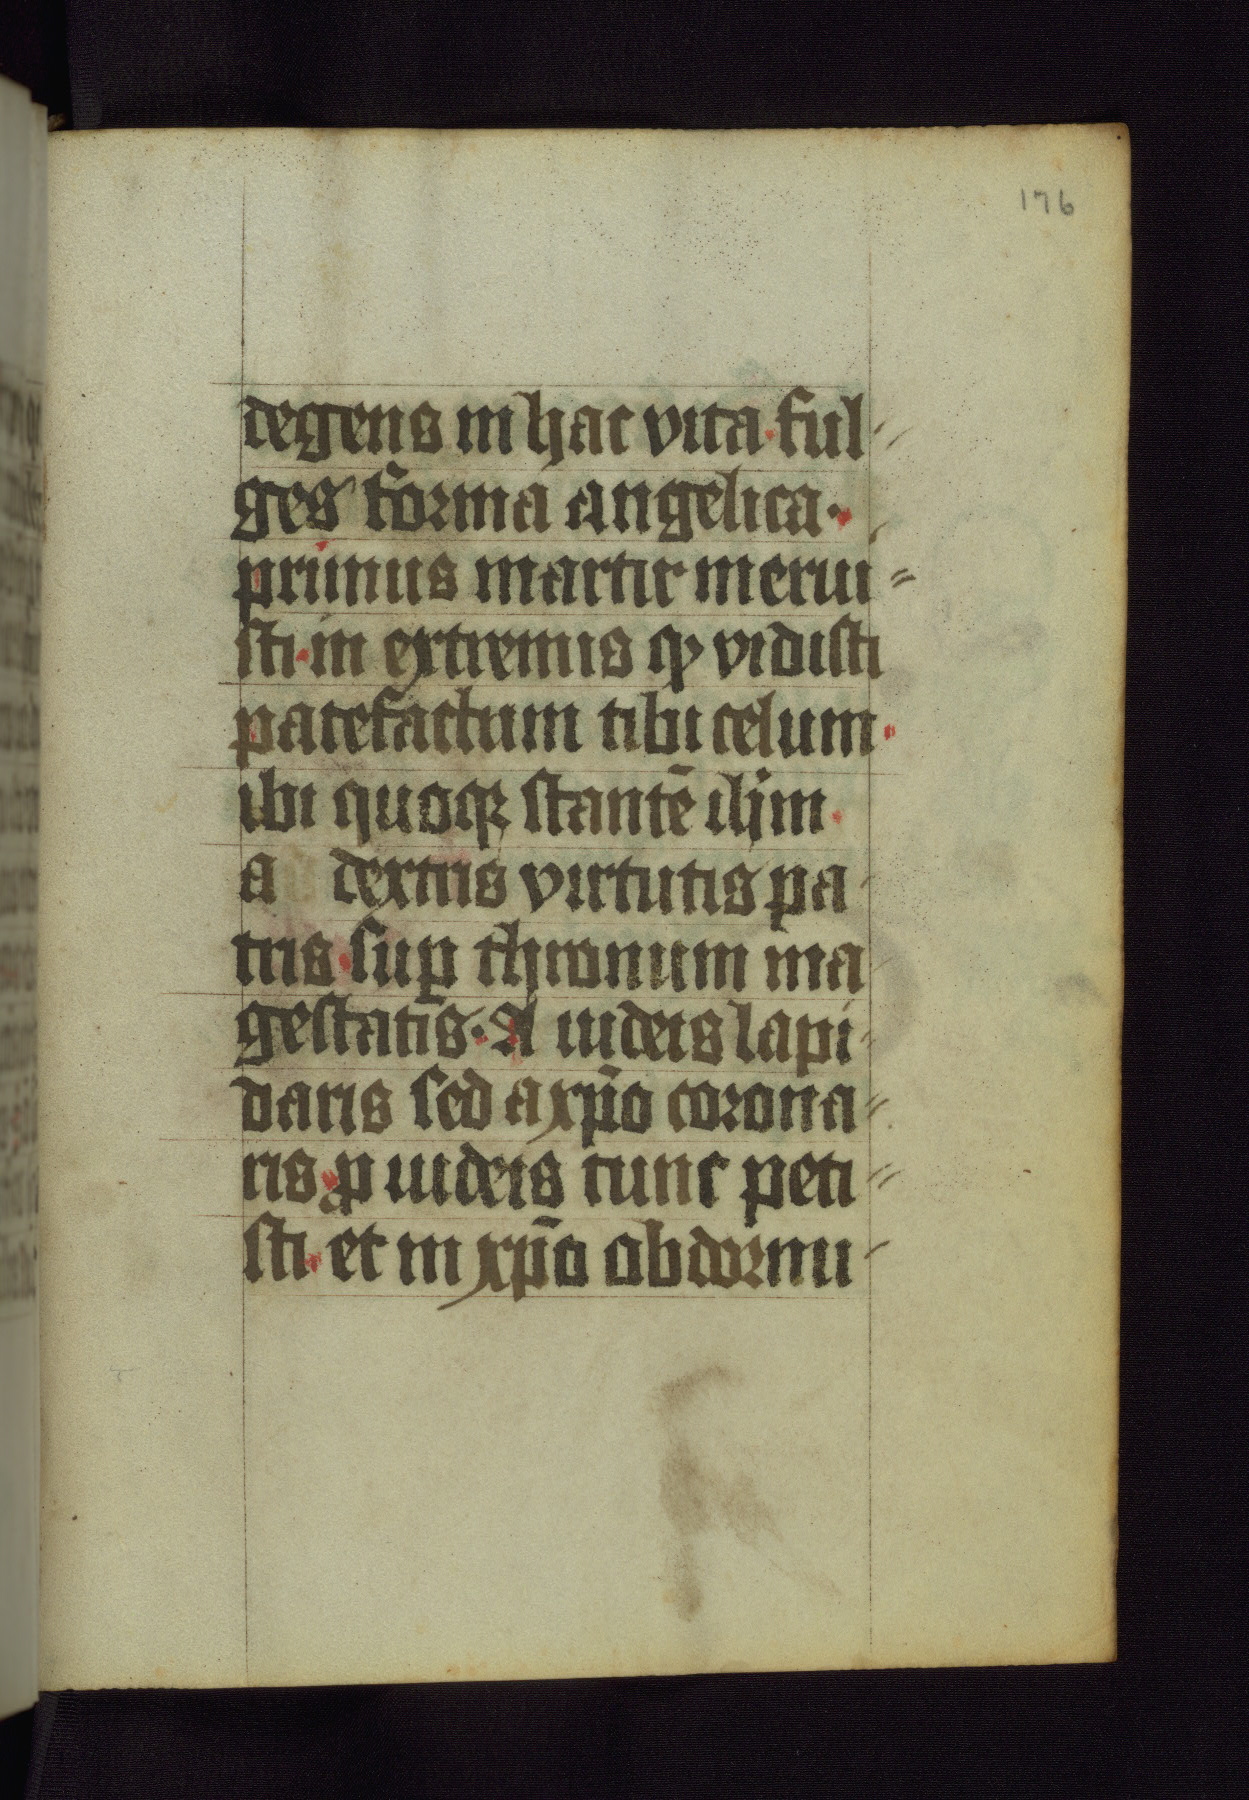 176
degens in hac vita. ful
ges forma angelica.
primus martir merui
sti. in extremis qꝫ vidisti
patefactum tibi celum.
ibi quoqꝫ stantē ihm̄.
a dextris virtutis pa
tris. suꝑ thronum ma
gestatis. A iudeis lapi
daris sed a xp̄o corona
ris. ꝓ iudeis tunc peti
sti. et in xp̄o obdormi